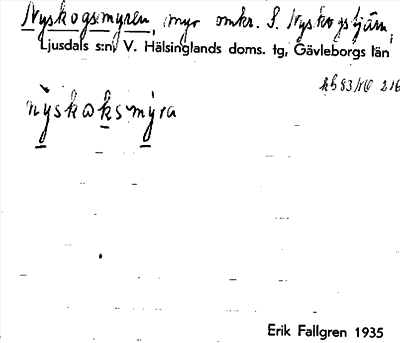 Nyskogsmyren, myr omkr. S. Nyskogstjärn,
Ljusdals s:n, V. Hälsinglands doms. tg, Gävleborgs län
83/
nyskωksmyra
Erik Fallgren 1935